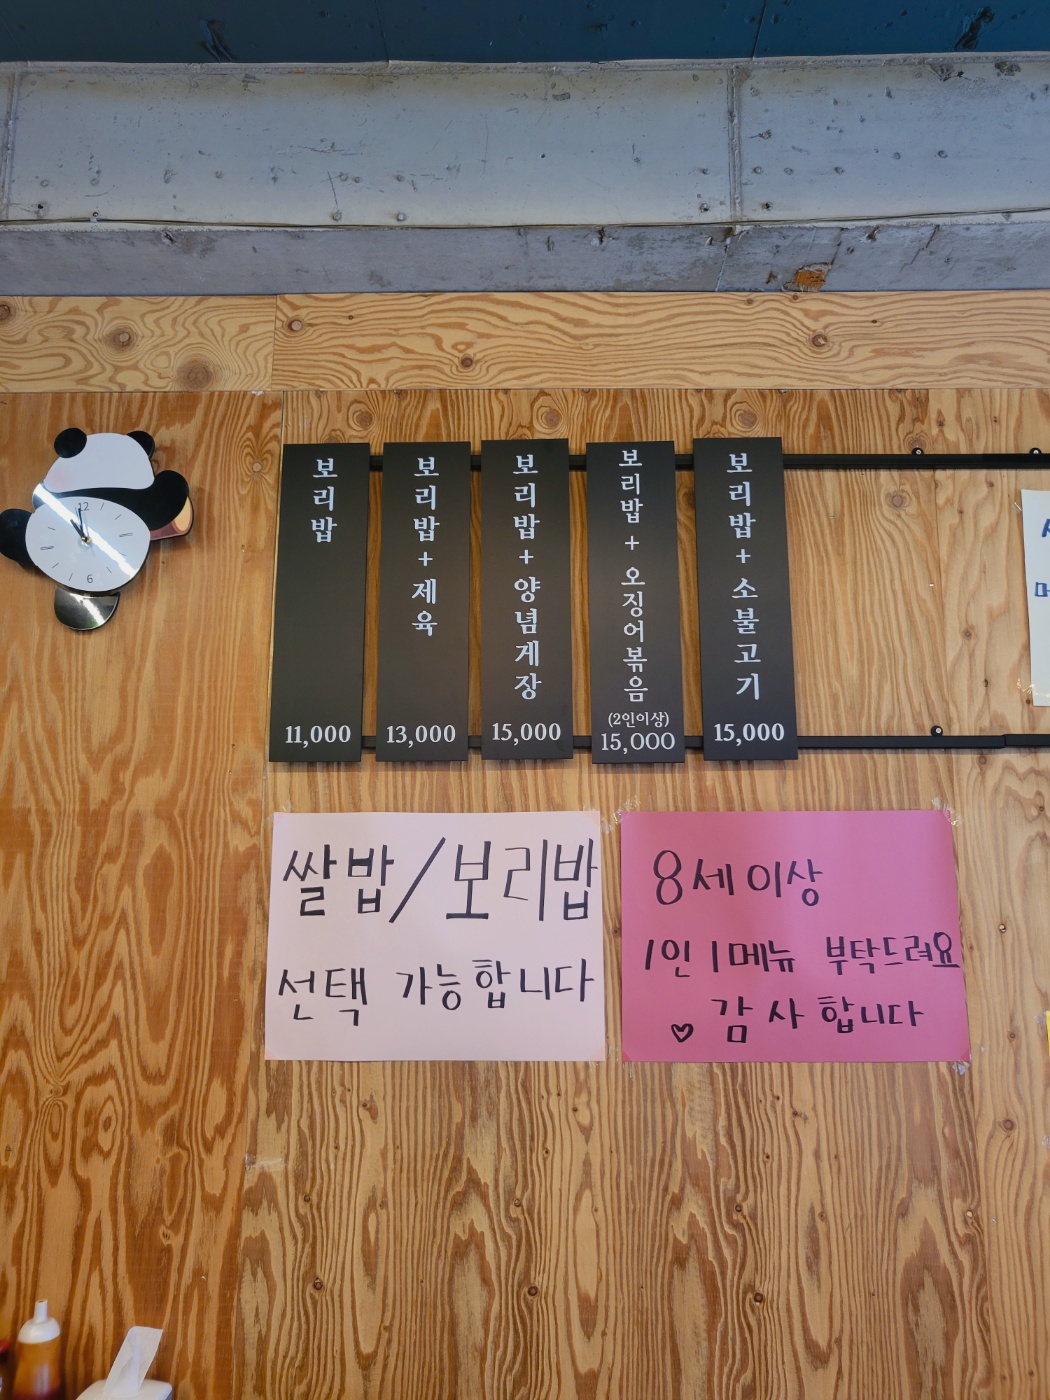 12
6
보리밥
11,000
보리밥+제육
13,000
보리밥+양념게장
15,000
보리밥+오징어볶음
(2인이상)
15,000
보리밥+소불고기
15,000
쌀밥/보리밥
선택 가능합니다
8세이상
1인 1메뉴 부탁드려요
♡ 감사합니다